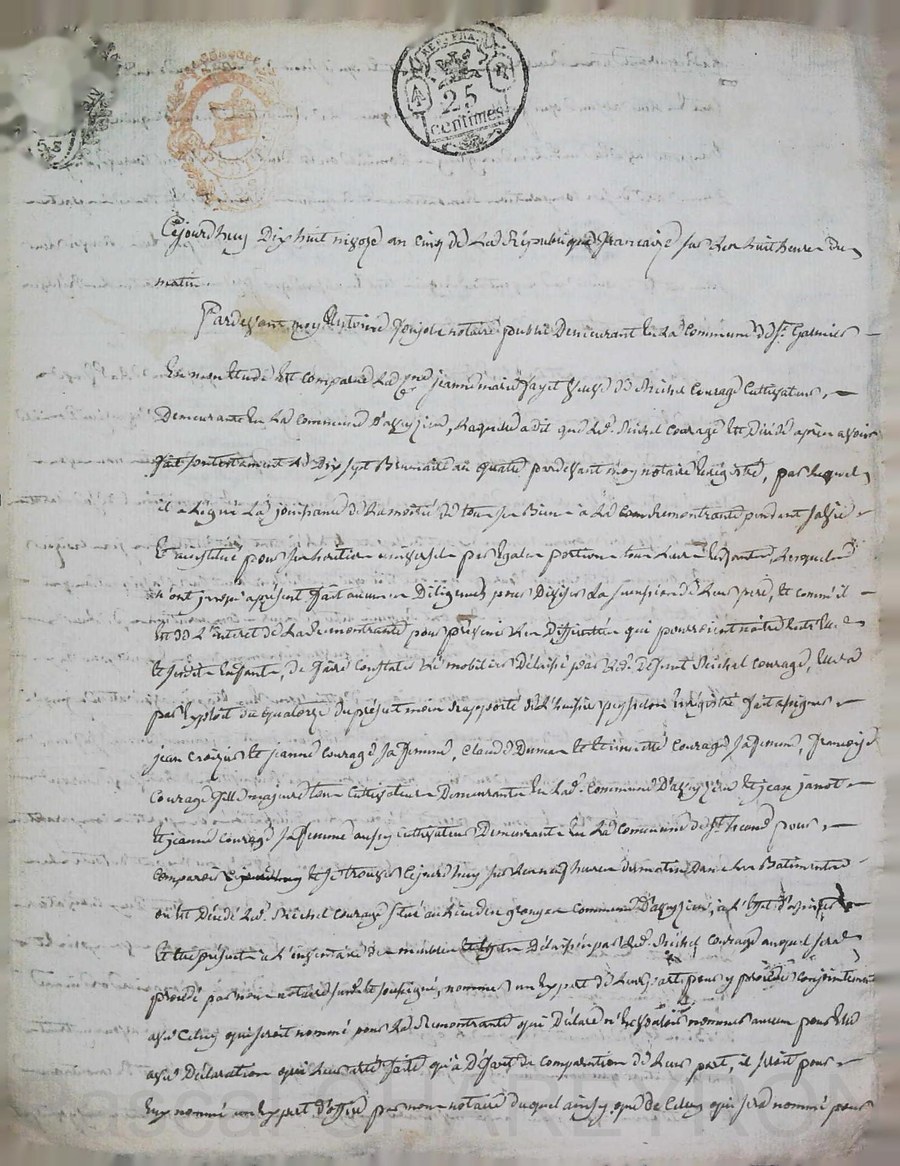 REP. FRA.
25
centimes
Cejourdhuy Dix huit nivose an cinq de La Republique francaise sur Les huit heures du
matin.
Pardevant moy Antoine notaire public Demeurant en La commune de St. Galmier
En mon etude Est comparue La jeanne marie fayet veuve de Michel Courage Cultivateur,
Demeurante en La commune D'aveyzieu, Laquelle a dit que Led. Michel Courage Est Décédé après avoir
fait son testament Le Dix sept Brumaire an quatre pardevant moy notaire Enregistré, par Lequel
il a Légué La jouissance de La moitié de tous ses Biens a La Remontrante pendant sa vie
Et institué pour ses heritiers universels par egales portions tous Leurs Enfants, Lesquels
n'ont jusqu'apresent fait aucunes Diligences pour Diviser La succession de Leur pere, Et comme il
Est de L'interet de La Remontrante pour prevenir Les Difficultés qui pourroient naitre Entre Elle
Et sesdits Enfants, de faire constater Le mobilier Délaissé par Led. Defunt Michel Courage, Elle a
par Exploit du quatorze du present mois Raporté de L'huissier Enregistré fait assigner
jean Crozier Et jeanne Courage sa femme, Claude Dumas Et Etiennette Courage sa femme, françoise
Courage fille majeure tous Cultivateurs Demeurants En Lad. Commune D'aveyzieu Et jean janot
Et jeanne Courage sa femme aussy Cultivateurs Demeurants En La Commune de St. pour
comparoir Et se trouver Cejourdhuy sur Les neuf heures du matin Dans Les Batiments
ou Est Décédé Led. Michel Courage situé au Lieu des granges Commune D'aveyzieu, a L'effet d'assister
Et Etre présents a L'inventaire des meubles Et Délaissés par Led. Michel Courage auquel sera
procédé par nous notaire soussigné, nommer un Expert de Leur part pour y procéder conjointement
avec Celuy qui seroit nommé pour La Remontrante qui Déclare n'En vouloir nommer aucun pour Elle
avec Déclaration qui Leur a été faite qu'à Défaut de comparution de Leur part, il seroit pour
Eux nommé un Expert d'office par nous notaire duquel ainsy que de Celuy qui sera nommé pour